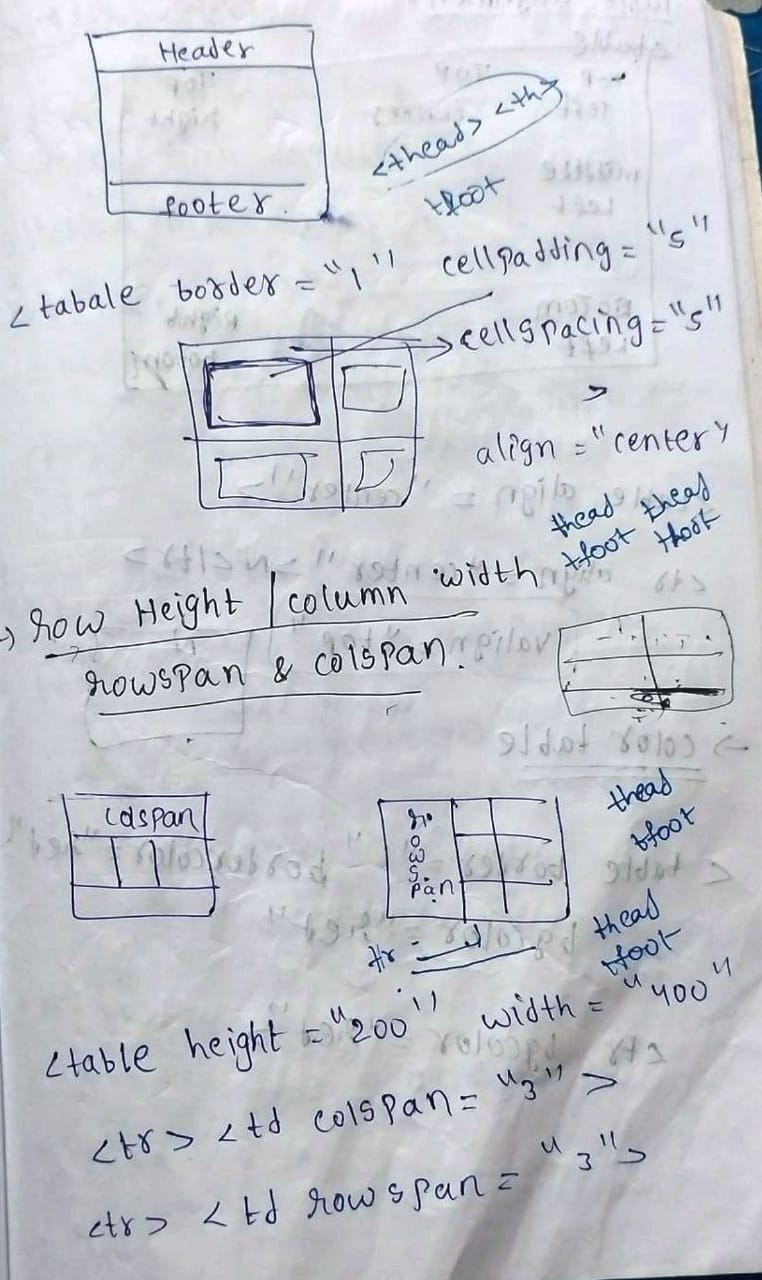 Header
<thead> <th>
tfoot
footer.
<tabale border = "1" cellpadding = "5"
cellspacing = "5"
>
align = "center"
thead thead
tfoot tfoot
→ row Height / column width
rowspan & colspan.
colspan
rows.pan
thead
tfoot
thead
tfoot
<table height = "200" width = "400"
<tr> <td colspan = "3" >
<tr> <td rowspan = "3">